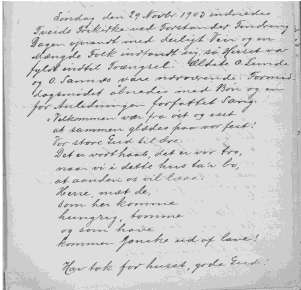 Söndag den 29 Novbr 1903 indviedes
Tveids Forkirke ved Forstander
Dagen oprandt med deiligt Veir og en
Mængde Folk indfandt sig, så Huset var
fyldt indtil Trængsel. Ældste O. Lunde
og O. Sannes vare nærværende. Formid-
dagsmødet åbnedes med Bön og en
for Anledningen forfattet Sang.
Velkommen vær fra öst og vest
at sammen glædes paa vor fest!
For store Gud til ære.
Det er vort haab, det er vor tro,
naar vi i dette hus ta'r bo,
at aanden os vil
Herre, mæt de,
som her komme
hungrig, tomme
og som have
kommen ud af lave!
Hav tak for huset, gode Gud!